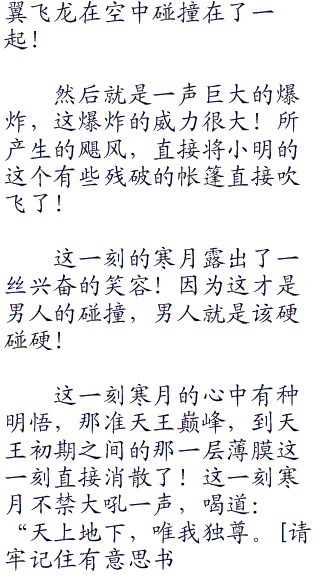 翼飞龙在空中碰撞在了一
起！
然后就是一声巨大的爆
炸，这爆炸的威力很大！所
产生的飓风，直接将小明的
这个有些残破的帐篷直接吹
飞了！
这一刻的寒月露出了一
丝兴奋的笑容！因为这才是
男人的碰撞，男人就是该硬
碰硬！
这一刻寒月的心中有种
明悟，那准天王巅峰，到天
王初期之间的那一层薄膜这
一刻直接消散了！这一刻寒
月不禁大吼一声，喝道：
“天上地下，唯我独尊。[请
牢记住有意思书